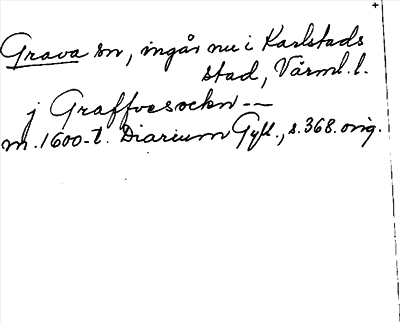 Grava sn, ingår nu i Karlstads
stad, Värml. l.
j Graffvesockn --
m. 1600-t. Diarium Gyll., s. 368. orig.